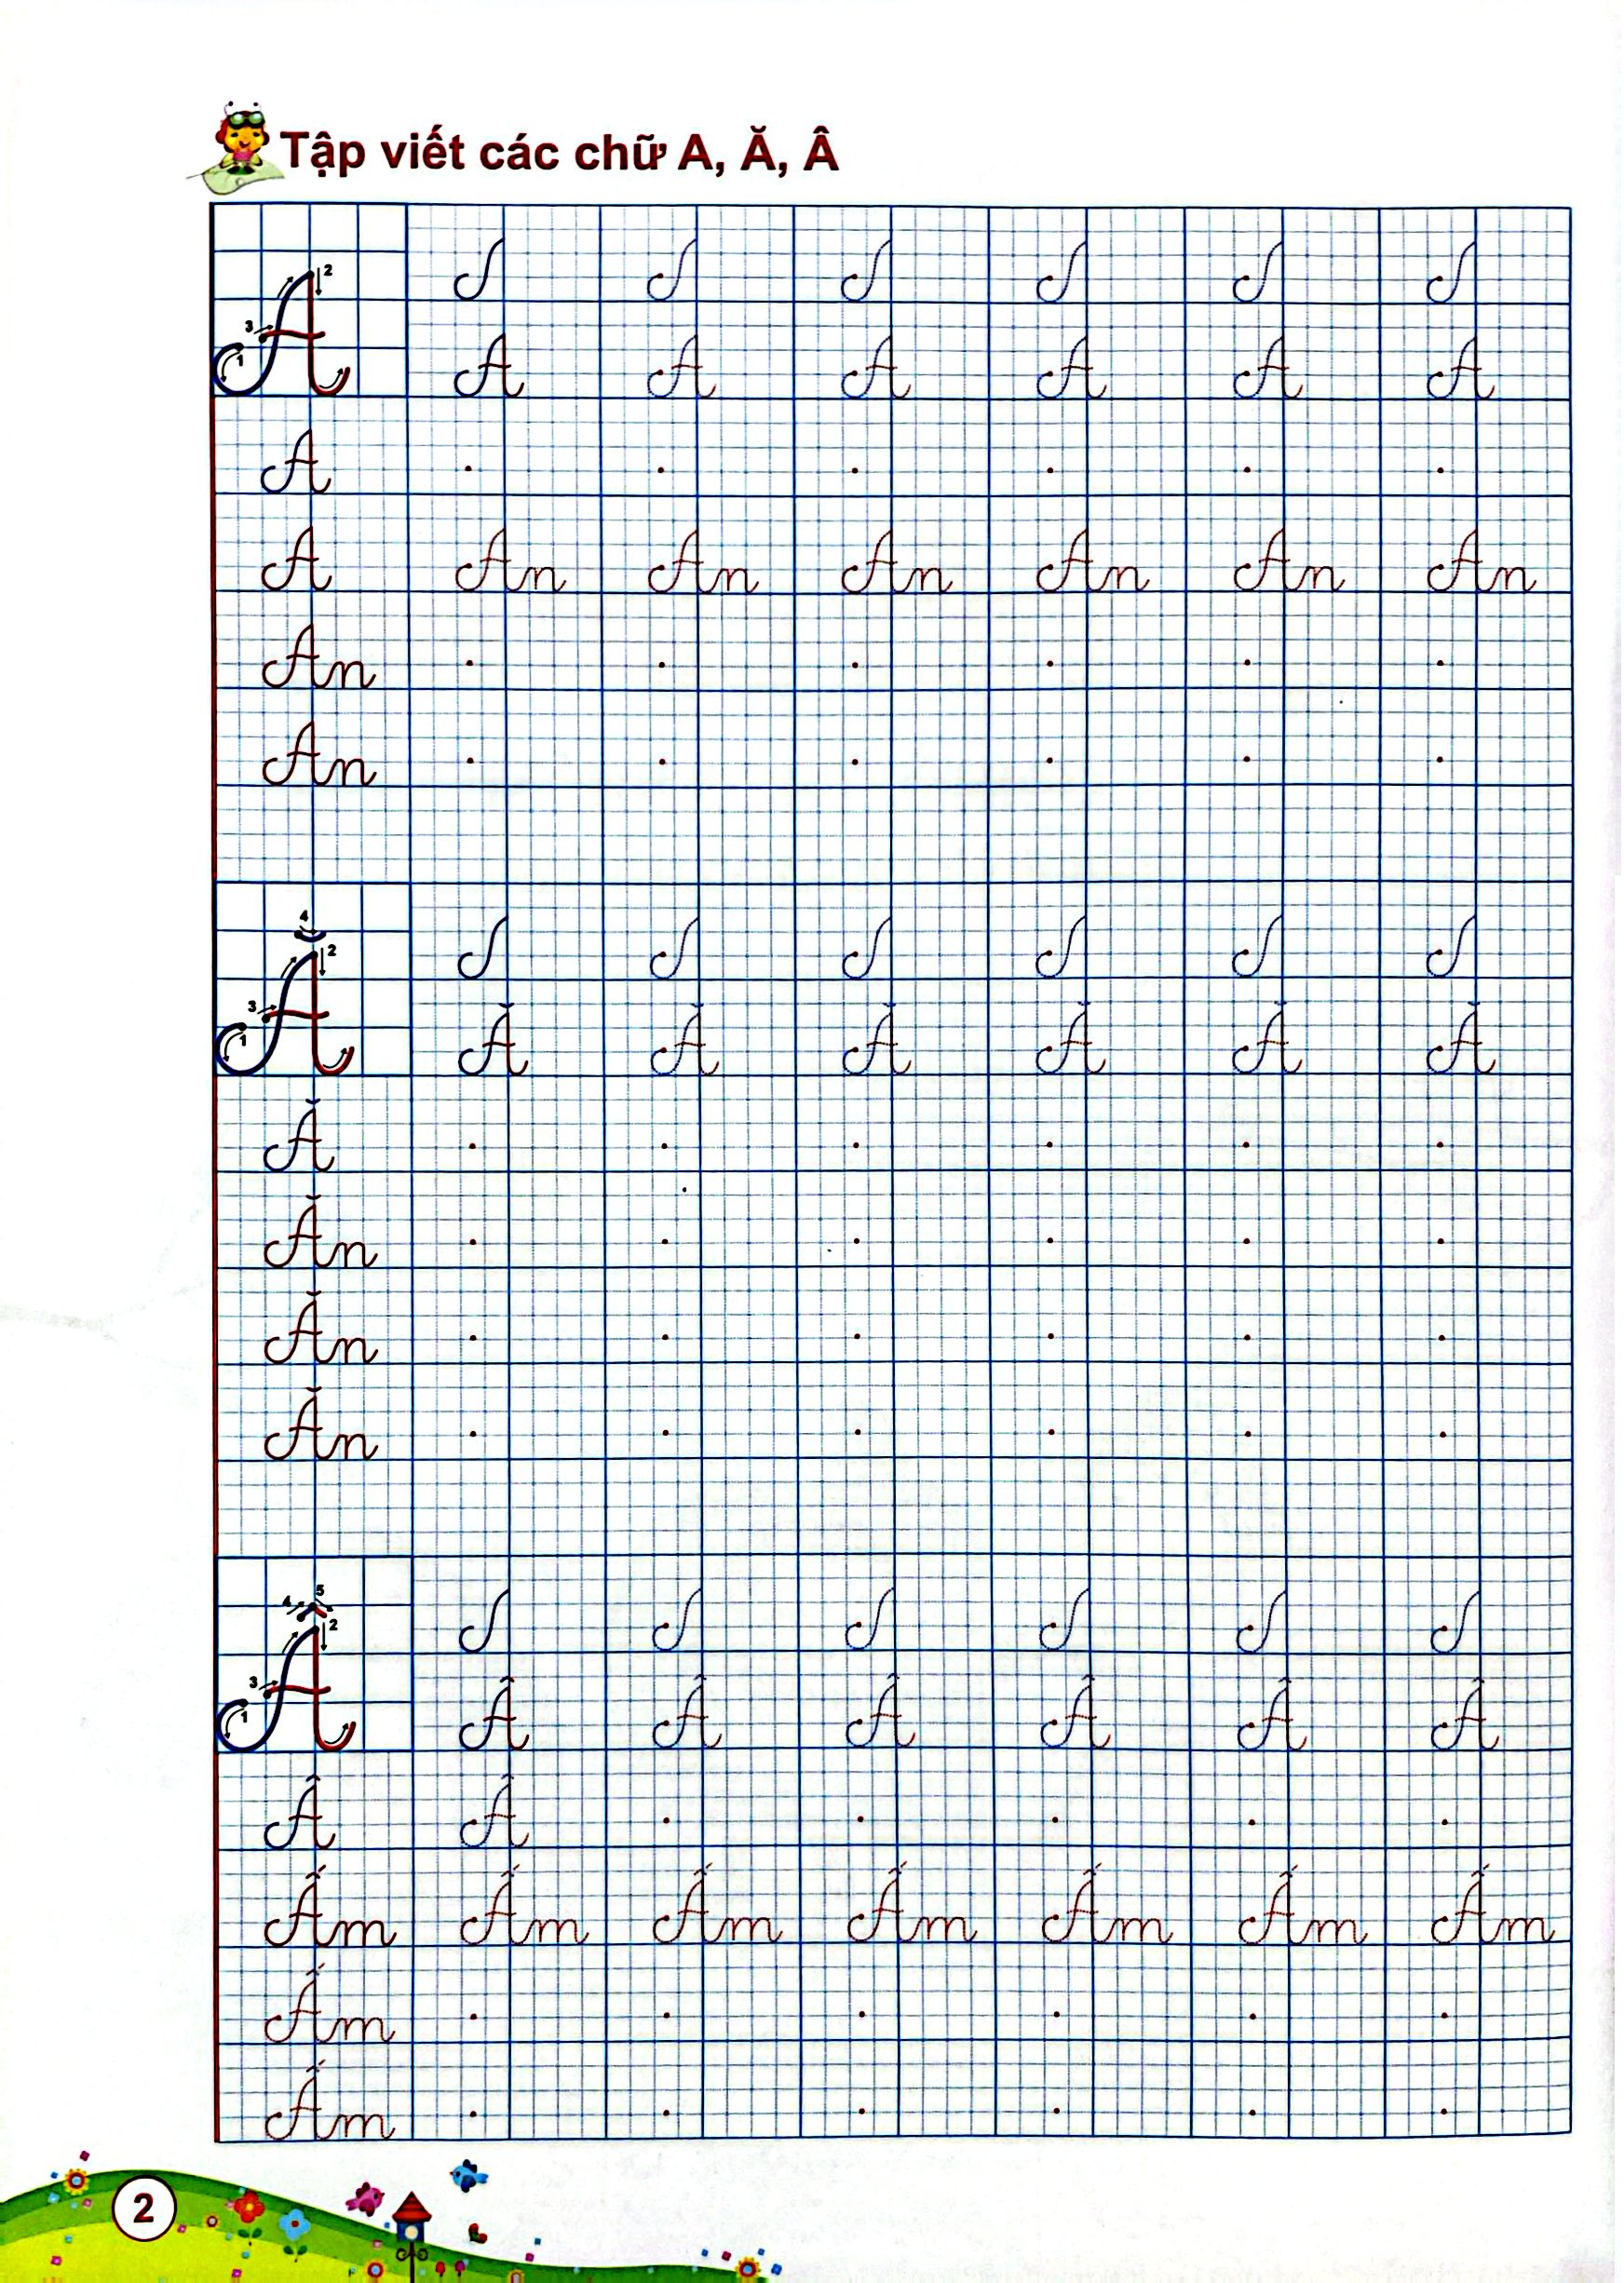 Tập viết các chữ A, Ă, Â
2
3
1
A A A A A A A
A
A An An An An An An
An
An
4
2
3
1
Ă Ă Ă Ă Ă Ă Ă
Ă
Ăn
Ăn
Ăn
4 5
2
3
1
Â Â Â Â Â Â Â
Â Â
Ấm Ấm Ấm Ấm Ấm Ấm Ấm
Ấm
Ấm
2